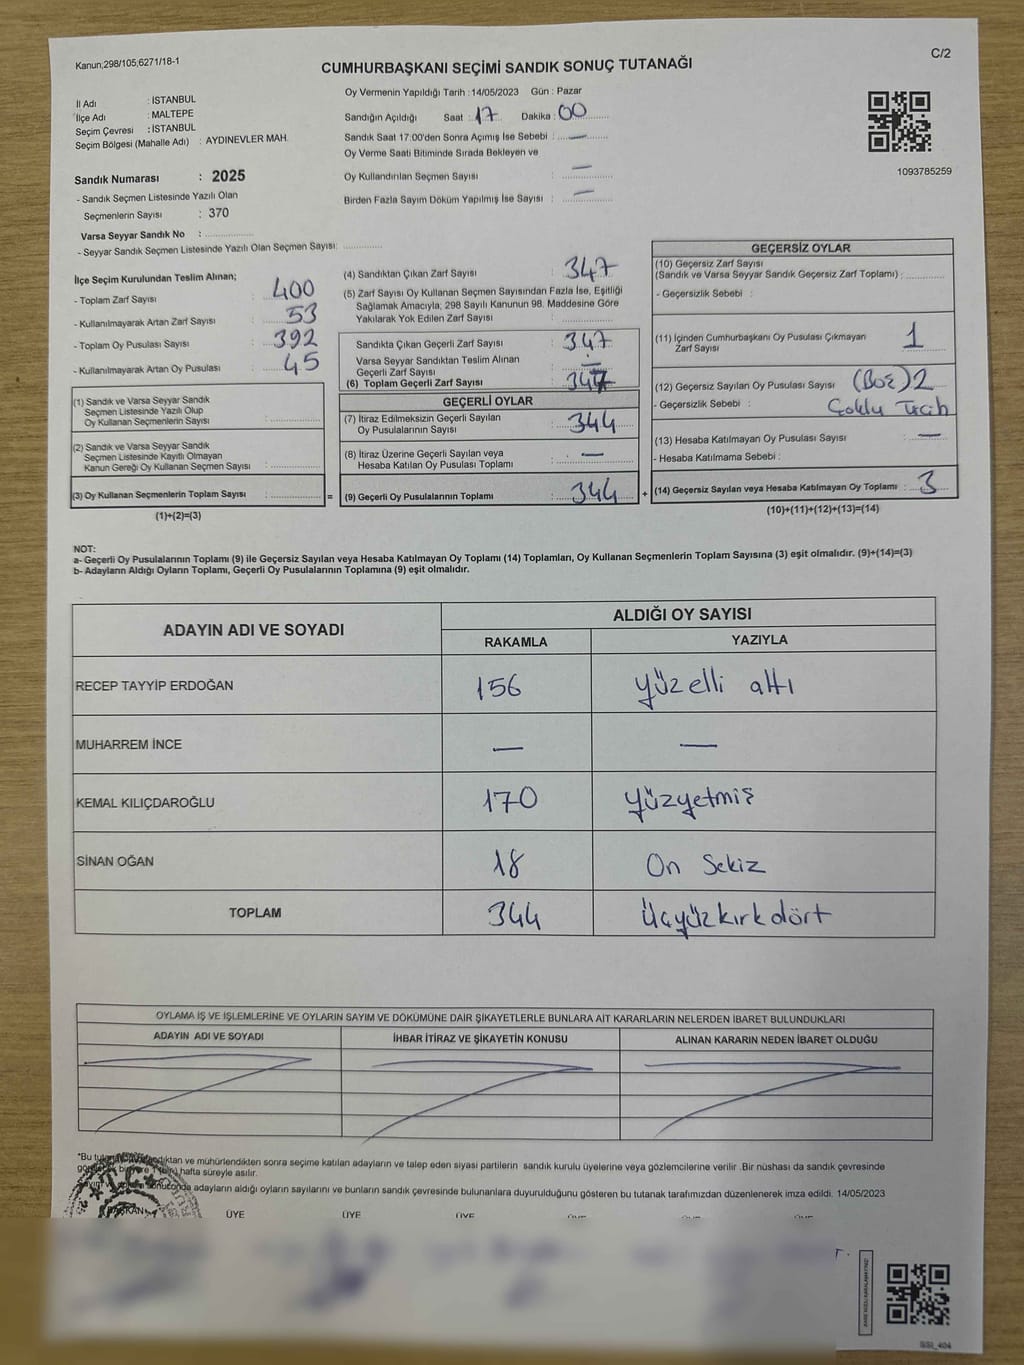 Kanun;298/105;6271/18-1
C/2
CUMHURBAŞKANI SEÇİMİ SANDIK SONUÇ TUTANAĞI
İl Adı : İSTANBUL
İlçe Adı : MALTEPE
Seçim Çevresi : İSTANBUL
Seçim Bölgesi (Mahalle Adı) : AYDINEVLER MAH.
Sandık Numarası : 2025
- Sandık Seçmen Listesinde Yazılı Olan
Seçmenlerin Sayısı : 370
Varsa Seyyar Sandık No :
- Seyyar Sandık Seçmen Listesinde Yazılı Olan Seçmen Sayısı:
Oy Vermenin Yapıldığı Tarih :14/05/2023 Gün : Pazar
Sandığın Açıldığı Saat : 17 Dakika : 00
Sandık Saat 17:00'den Sonra Açımış İse Sebebi : —
Oy Verme Saati Bitiminde Sırada Bekleyen ve
Oy Kullandırılan Seçmen Sayısı : —
Birden Fazla Sayım Döküm Yapılmış İse Sayısı : —
1093785259
İlçe Seçim Kurulundan Teslim Alınan;
- Toplam Zarf Sayısı : 400
- Kullanılmayarak Artan Zarf Sayısı : 53
- Toplam Oy Pusulası Sayısı : 392
- Kullanılmayarak Artan Oy Pusulası : 45
(1) Sandık ve Varsa Seyyar Sandık
Seçmen Listesinde Yazılı Olup
Oy Kullanan Seçmenlerin Sayısı :
(2) Sandık ve Varsa Seyyar Sandık
Seçmen Listesinde Kayıtlı Olmayan
Kanun Gereği Oy Kullanan Seçmen Sayısı :
(3) Oy Kullanan Seçmenlerin Toplam Sayısı : =
(1)+(2)=(3)
(4) Sandıktan Çıkan Zarf Sayısı : 347
(5) Zarf Sayısı Oy Kullanan Seçmen Sayısından Fazla İse, Eşitliği
Sağlamak Amacıyla, 298 Sayılı Kanunun 98. Maddesine Göre
Yakılarak Yok Edilen Zarf Sayısı :
Sandıkta Çıkan Geçerli Zarf Sayısı : 347
Varsa Seyyar Sandıktan Teslim Alınan
Geçerli Zarf Sayısı : —
(6) Toplam Geçerli Zarf Sayısı : 347
GEÇERLİ OYLAR
(7) İtiraz Edilmeksizin Geçerli Sayılan
Oy Pusulalarının Sayısı : 344
(8) İtiraz Üzerine Geçerli Sayılan veya
Hesaba Katılan Oy Pusulası Toplamı : —
(9) Geçerli Oy Pusulalarının Toplamı : 344 +
GEÇERSİZ OYLAR
(10) Geçersiz Zarf Sayısı
(Sandık ve Varsa Seyyar Sandık Geçersiz Zarf Toplamı) :
- Geçersizlik Sebebi :
(11) İçinden Cumhurbaşkanı Oy Pusulası Çıkmayan
Zarf Sayısı : 1
(12) Geçersiz Sayılan Oy Pusulası Sayısı : (Boş) 2
- Geçersizlik Sebebi : Çoklu Tercih
(13) Hesaba Katılmayan Oy Pusulası Sayısı : —
- Hesaba Katılmama Sebebi :
(14) Geçersiz Sayılan veya Hesaba Katılmayan Oy Toplamı : 3
(10)+(11)+(12)+(13)=(14)
NOT:
a- Geçerli Oy Pusulalarının Toplamı (9) ile Geçersiz Sayılan veya Hesaba Katılmayan Oy Toplamı (14) Toplamları, Oy Kullanan Seçmenlerin Toplam Sayısına (3) eşit olmalıdır. (9)+(14)=(3)
b- Adayların Aldığı Oyların Toplamı, Geçerli Oy Pusulalarının Toplamına (9) eşit olmalıdır.
ADAYIN ADI VE SOYADI ALDIĞI OY SAYISI
RAKAMLA YAZIYLA
RECEP TAYYİP ERDOĞAN 156 yüz elli altı
MUHARREM İNCE — —
KEMAL KILIÇDAROĞLU 170 yüzyetmiş
SİNAN OĞAN 18 On Sekiz
TOPLAM 344 Üçyüzkırkdört
OYLAMA İŞ VE İŞLEMLERİNE VE OYLARIN SAYIM VE DÖKÜMÜNE DAİR ŞİKAYETLERLE BUNLARA AİT KARARLARIN NELERDEN İBARET BULUNDUKLARI
ADAYIN ADI VE SOYADI İHBAR İTİRAZ VE ŞİKAYETİN KONUSU ALINAN KARARIN NEDEN İBARET OLDUĞU
*Bu mühürlendikten sonra seçime katılan adayların ve talep eden siyasi partilerin sandık kurulu üyelerine veya gözlemcilerine verilir .Bir nüshası da sandık çevresinde
hafta süreyle asılır.
adayların aldığı oyların sayılarını ve bunların sandık çevresinde bulunanlara duyurulduğunu gösteren bu tutanak tarafımızdan düzenlenerek imza edildi. 14/05/2023
BAŞKAN ÜYE ÜYE ÜYE